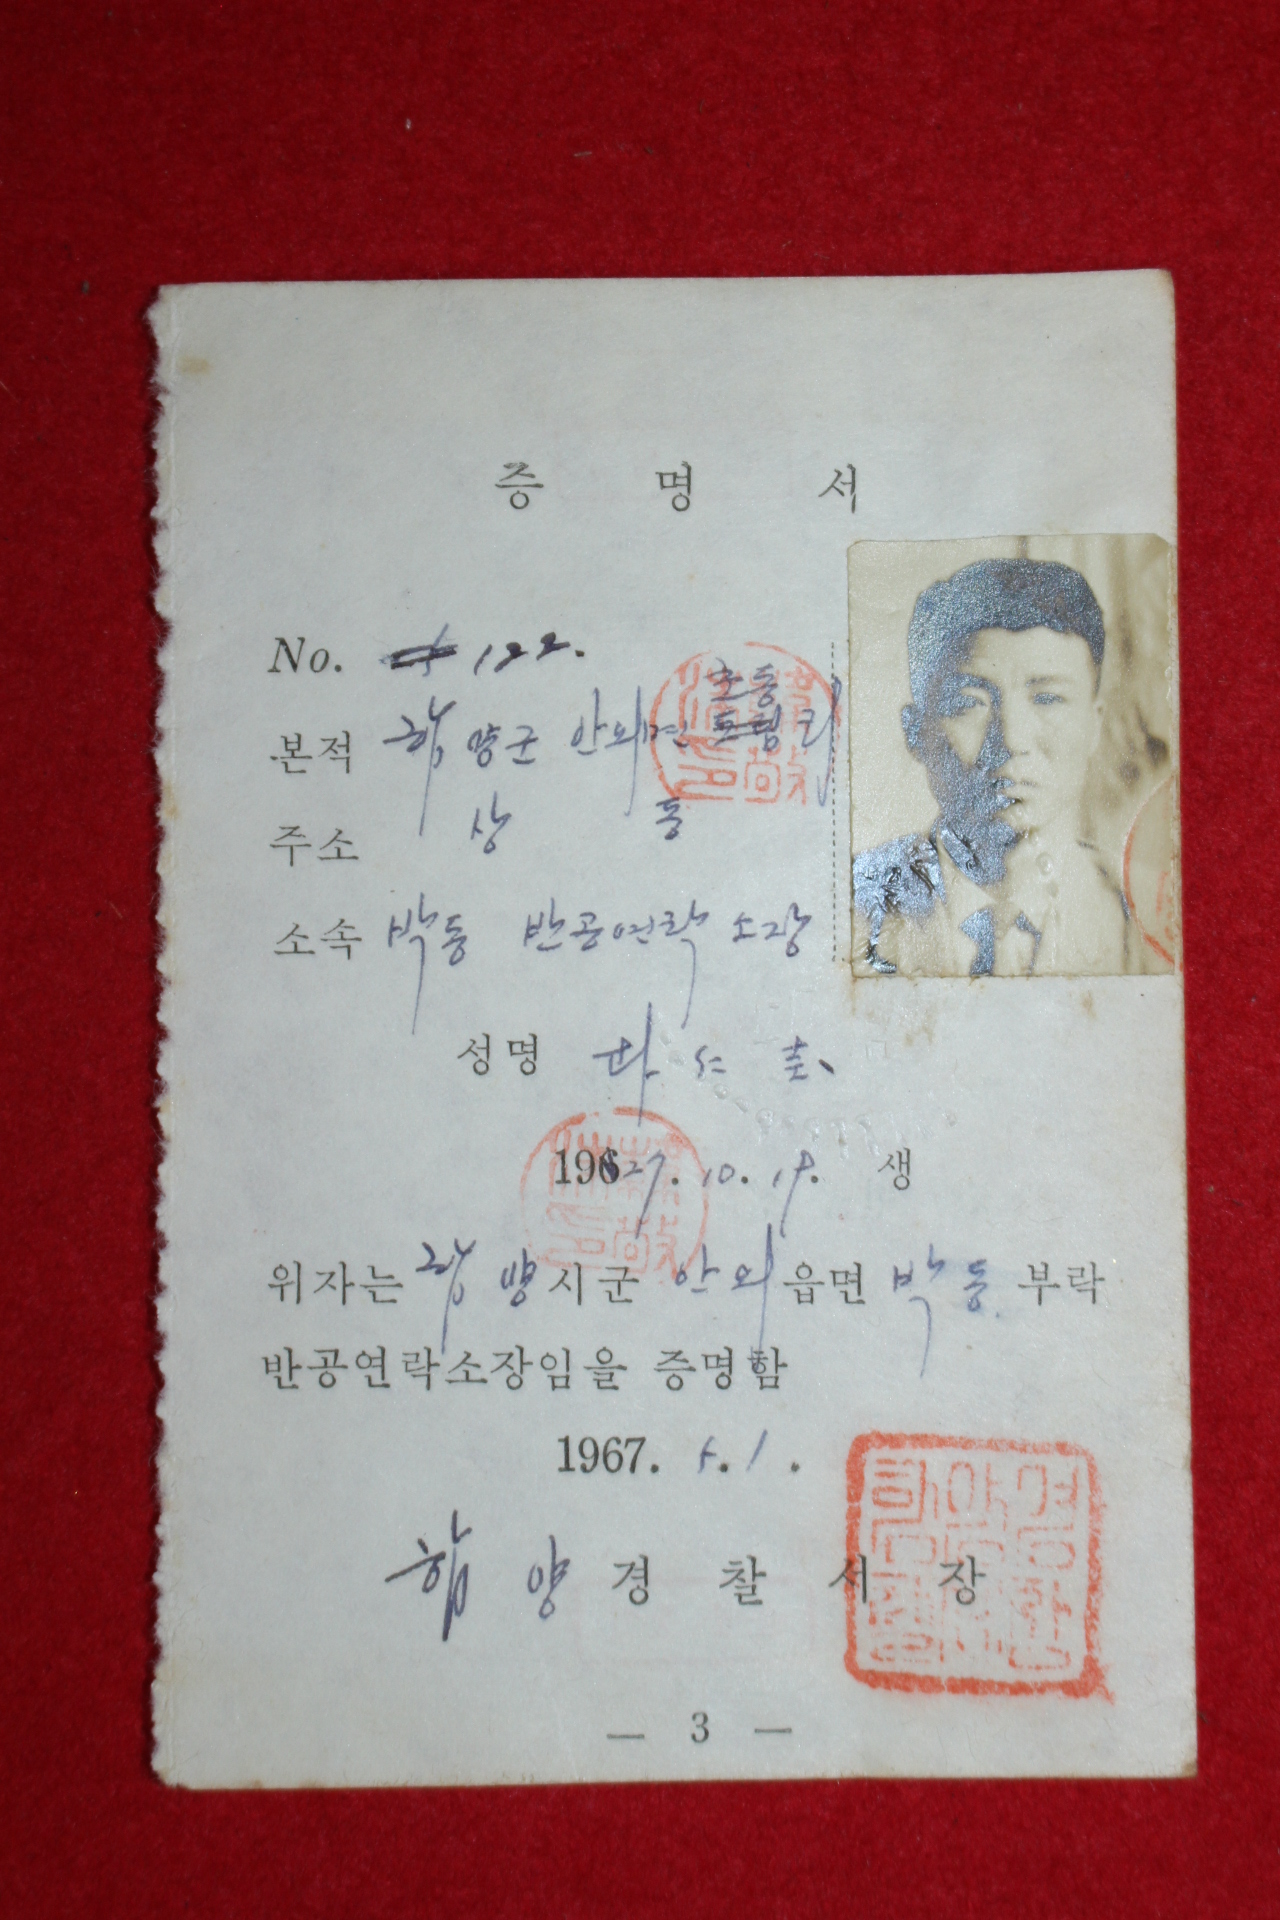 증 명 서
No. 122.
초동
본적 함양군 안의면 도림리
주소 상 동
소속 박동 반공연락 소장
성명
1927. 10. 19. 생
위자는 함양시군 안의읍면 박동 부락
반공연락소장임을 증명함
1967. 5. 1.
함양경찰서장
— 3 —